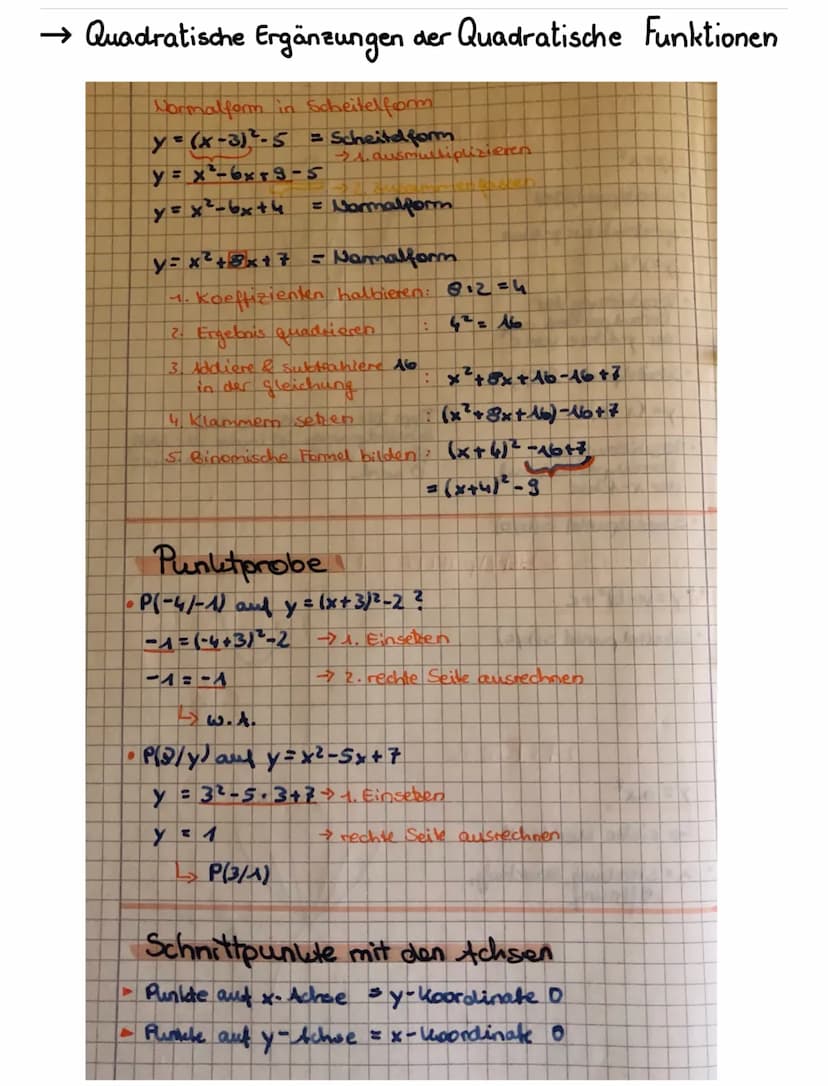 → Quadratische Ergänzungen der Quadratische Funktionen
Normalform in Scheitelform
y = (x-3)²-5 = Scheitelform
→ 1. ausmultiplizieren
y = x²-6x+9-5
y = x²-6x+4 = Normalform
y = x²+8x+7 = Normalform
1. Koeffizienten halbieren: 8:2=4
2. Ergebnis quadrieren : 4² = 16
3. Addiere & subtrahiere 16
in der gleichung : x²+8x+16-16+7
4. Klammern setzen : (x²+8x+16)-16+7
5. Binomische Formel bilden : (x+4)² -16+7
= (x+4)² - 9
Punktprobe
• P(-4/-1) auf y = (x+3)²-2 ?
-1 = (-4+3)²-2 → 1. Einsetzen
-1 = -1 → 2. rechte Seite ausrechnen
↳ w.A.
• P(3/y) auf y = x²-5x+7
y = 3²-5·3+7 → 1. Einsetzen
y = 1 → rechte Seite ausrechnen
↳ P(3/1)
Schnittpunkte mit den Achsen
► Punkte auf x-Achse = y-Koordinate 0
► Punkte auf y-Achse = x-Koordinate 0